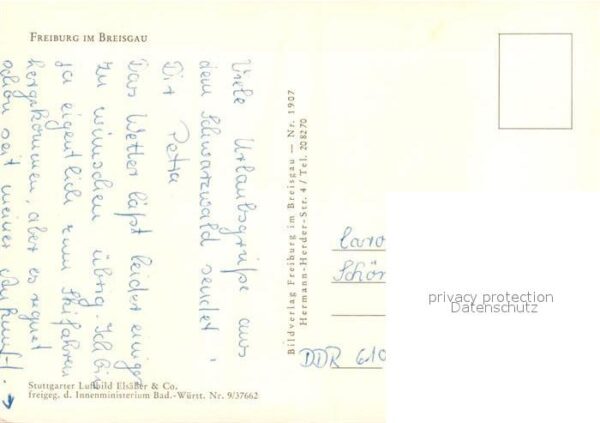 FREIBURG IM BREISGAU
Viele Urlaubsgrüße aus
dem Schwarzwald sendet
Dir Petra.
Das Wetter läßt leider einiges
zu wünschen übrig. Ich bin
ja eigentlich zum Skifahren
hergekommen, aber es regnet
schon seit meiner Ankunft. →
Bildverlag Freiburg im Breisgau — Nr. 1907
Hermann-Herder-Str. 4 / Tel. 208270
Caro
Schön
DDR 610
privacy protection
Datenschutz
Stuttgarter Luftbild Elsäßer & Co.
freigeg. d. Innenministerium Bad.-Württ. Nr. 9/37662